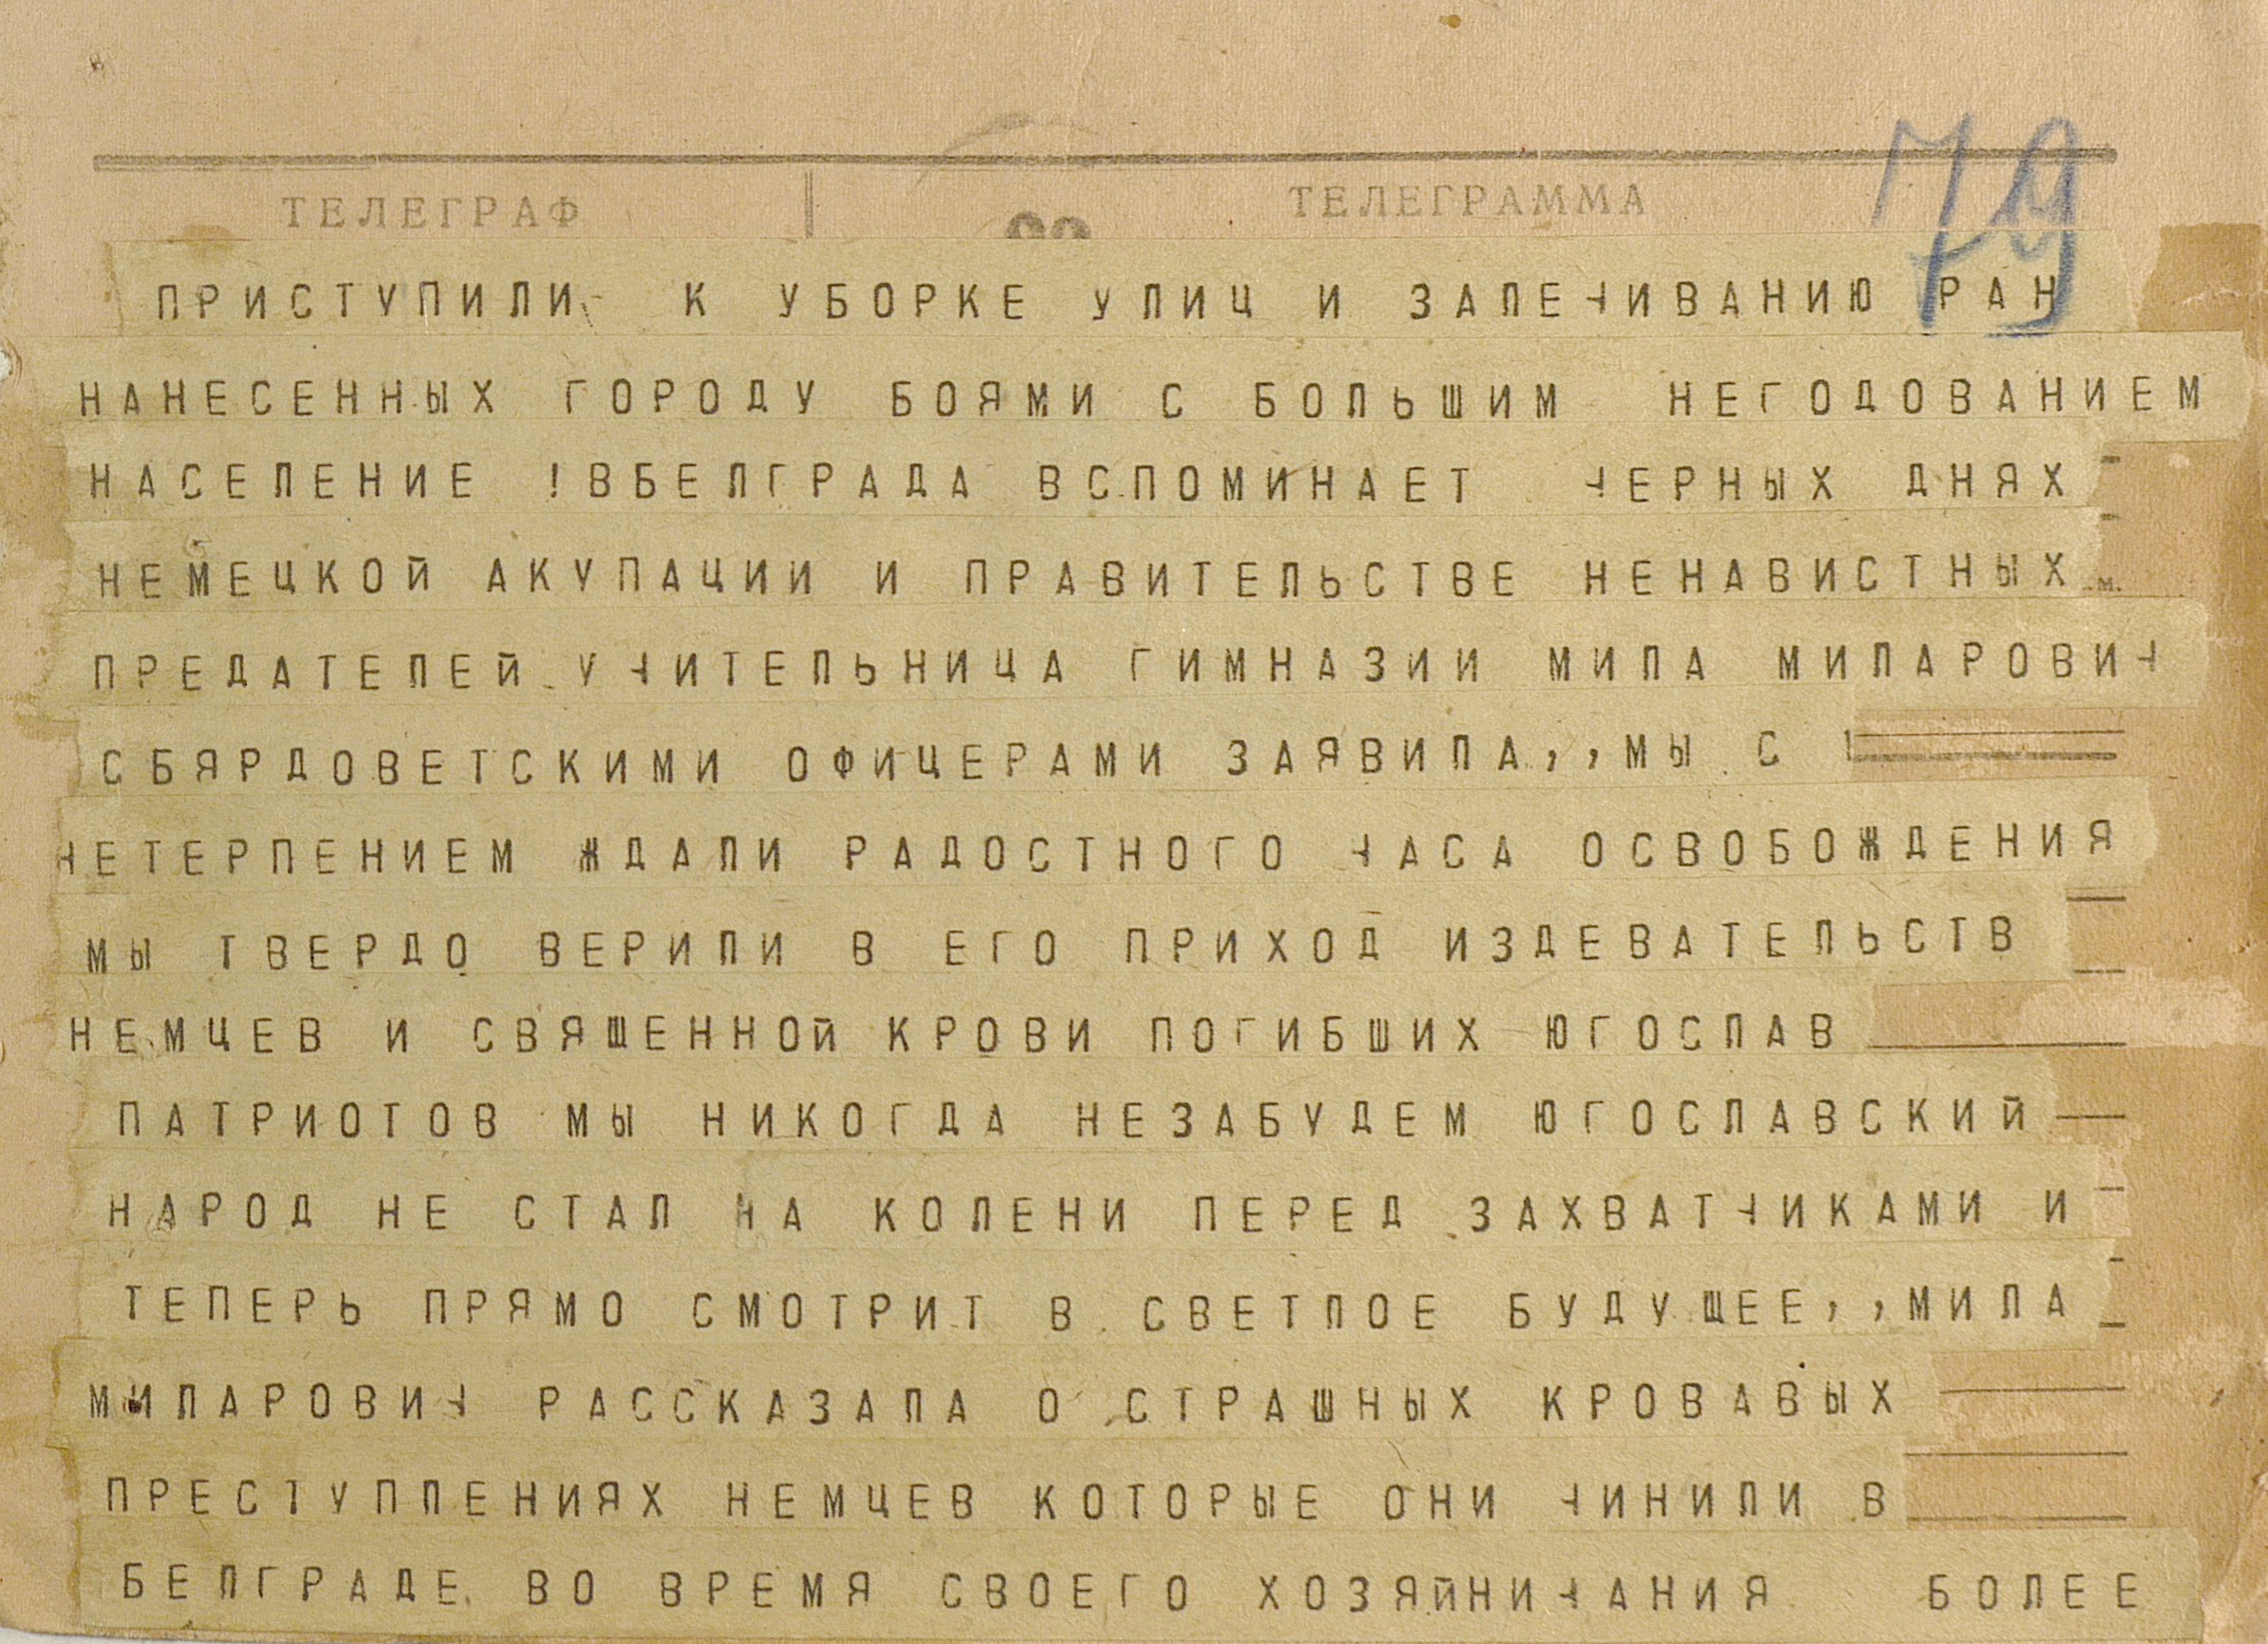 79
ТЕЛЕГРАФ ТЕЛЕГРАММА
ПРИСТУПИЛИ К УБОРКЕ УЛИЦ И ЗАЛЕЧИВАНИЮ РАН
НАНЕСЕННЫХ ГОРОДУ БОЯМИ С БОЛЬШИМ НЕГОДОВАНИЕМ
НАСЕЛЕНИЕ !ВБЕЛГРАДА ВСПОМИНАЕТ ЧЕРНЫХ ДНЯХ
НЕМЕЦКОЙ АКУПАЦИИ И ПРАВИТЕЛЬСТВЕ НЕНАВИСТНЫХ
ПРЕДАТЕЛЕЙ УЧИТЕЛЬНИЦА ГИМНАЗИИ МИЛА МИЛАРОВИЧ
СБЯРДОВЕТСКИМИ ОФИЦЕРАМИ ЗАЯВИЛА,,МЫ С
НЕТЕРПЕНИЕМ ЖДАЛИ РАДОСТНОГО ЧАСА ОСВОБОЖДЕНИЯ
МЫ ТВЕРДО ВЕРИЛИ В ЕГО ПРИХОД ИЗДЕВАТЕЛЬСТВ
НЕМЦЕВ И СВЯЩЕННОЙ КРОВИ ПОГИБШИХ ЮГОСЛАВ
ПАТРИОТОВ МЫ НИКОГДА НЕЗАБУДЕМ ЮГОСЛАВСКИЙ
НАРОД НЕ СТАЛ НА КОЛЕНИ ПЕРЕД ЗАХВАТЧИКАМИ И
ТЕПЕРЬ ПРЯМО СМОТРИТ В СВЕТЛОЕ БУДУЩЕЕ,,МИЛА
МИЛАРОВИЧ РАССКАЗАЛА О СТРАШНЫХ КРОВАВЫХ
ПРЕСТУПЛЕНИЯХ НЕМЦЕВ КОТОРЫЕ ОНИ ЧИНИЛИ В
БЕЛГРАДЕ ВО ВРЕМЯ СВОЕГО ХОЗЯЙНИЧАНИЯ БОЛЕЕ